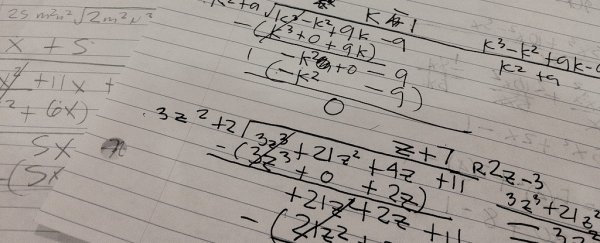 25 m²n² √2m²n²
x + 5
x² + 11x +
² + 6x)
5x
(5x
k - 1
k² + 9 √k³ - k² + 9k - 9
- (k³ + 0 + 9k)
- k² + 0 - 9
(- k² - 9)
0
k³ - k² + 9k -
k² + 9
z + 7 R 2z - 3
3z² + 2 √3z³ + 21z² + 4z + 11
- (3z³ + 0 + 2z)
+ 21z² + 2z + 11
- (21z²
3z³ + 21z²